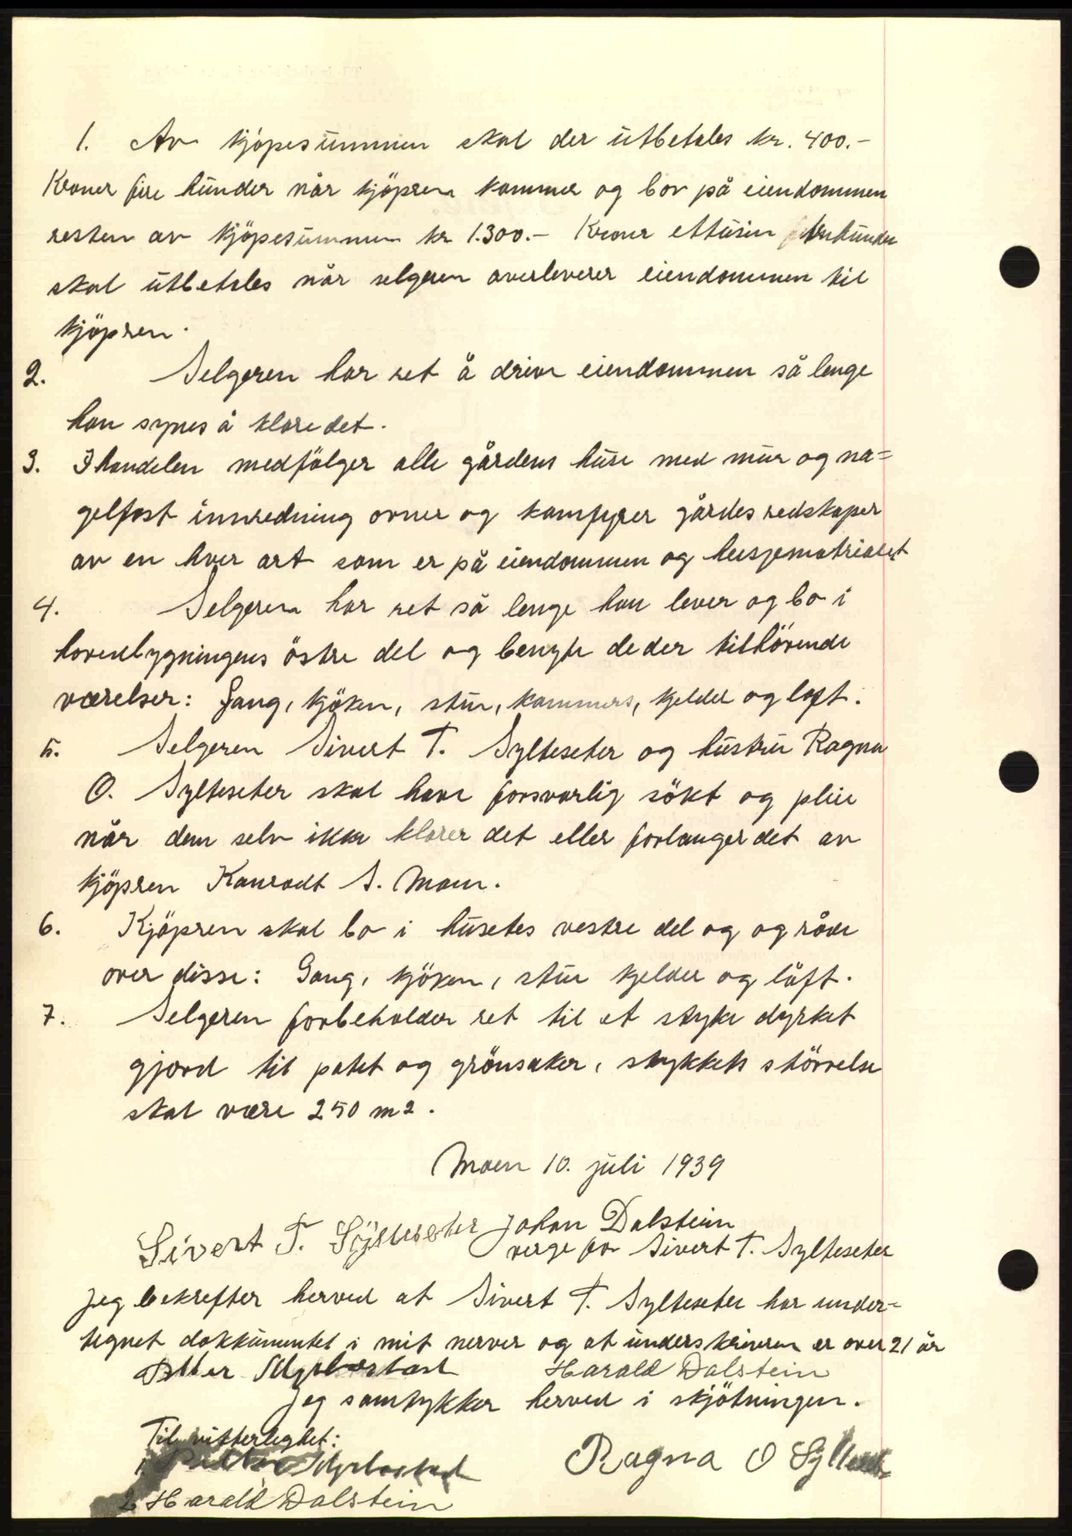 1. Av kjöpesummen skal der utbetales kr. 400.-
Kroner fire hunder når kjöpren kommer og bor på eiendommen
resten av kjöpesummen kr 1.300.- Kroner ettusin trehunder
skal utbetales når selgeren overleverer eiendommen til
kjöpren.
2. Selgeren har ret å drive eiendommen så lenge
han synes å klare det.
3. I handelen medfölger alle gårdens huse med mur og na=
gelfast innredning ovner og kamfyrer gårdes redskaper
av en hver art som er på eiendommen og hesjematrialet
4. Selgeren har ret så lenge han lever og bo i
hovedbygningens östre del og benyte de der tilhörende
værelser: Gang, kjöken, stue, kammers, kjelder og loft.
5. Selgeren Sivert T. Sylteseter og hustru Ragna
O. Sylteseter skal have forsvarlig sökt og pleie
når dem selv ikke klarer det eller forlanger det av
kjöpren Konradt S. Moen.
6. Kjöpren skal bo i husetes vestre del og og råde
over disse: Gang, kjöken, stue kjelder og löft.
7. Selgeren forbeholder ret til et styke dyrket
gjord til potet og grönsaker, stykkets störrelse
skal være 250 m2.
Moen 10. juli 1939
Sivert T. Sylteseter Johan Dalstein
verge for Sivert T. Sylteseter
Jeg bekrefter herved at Sivert T. Sylteseter har under=
tegnet dokkumentet i mit nerver og at underskriveren er over 21 år
Petter Myrbostad Harald Dalstein
Jeg samtykker herved i skjötningen.
Til vitterlighet:
1. Petter Myrbostad Ragna O Sylteseter
2 Harald Dalstein